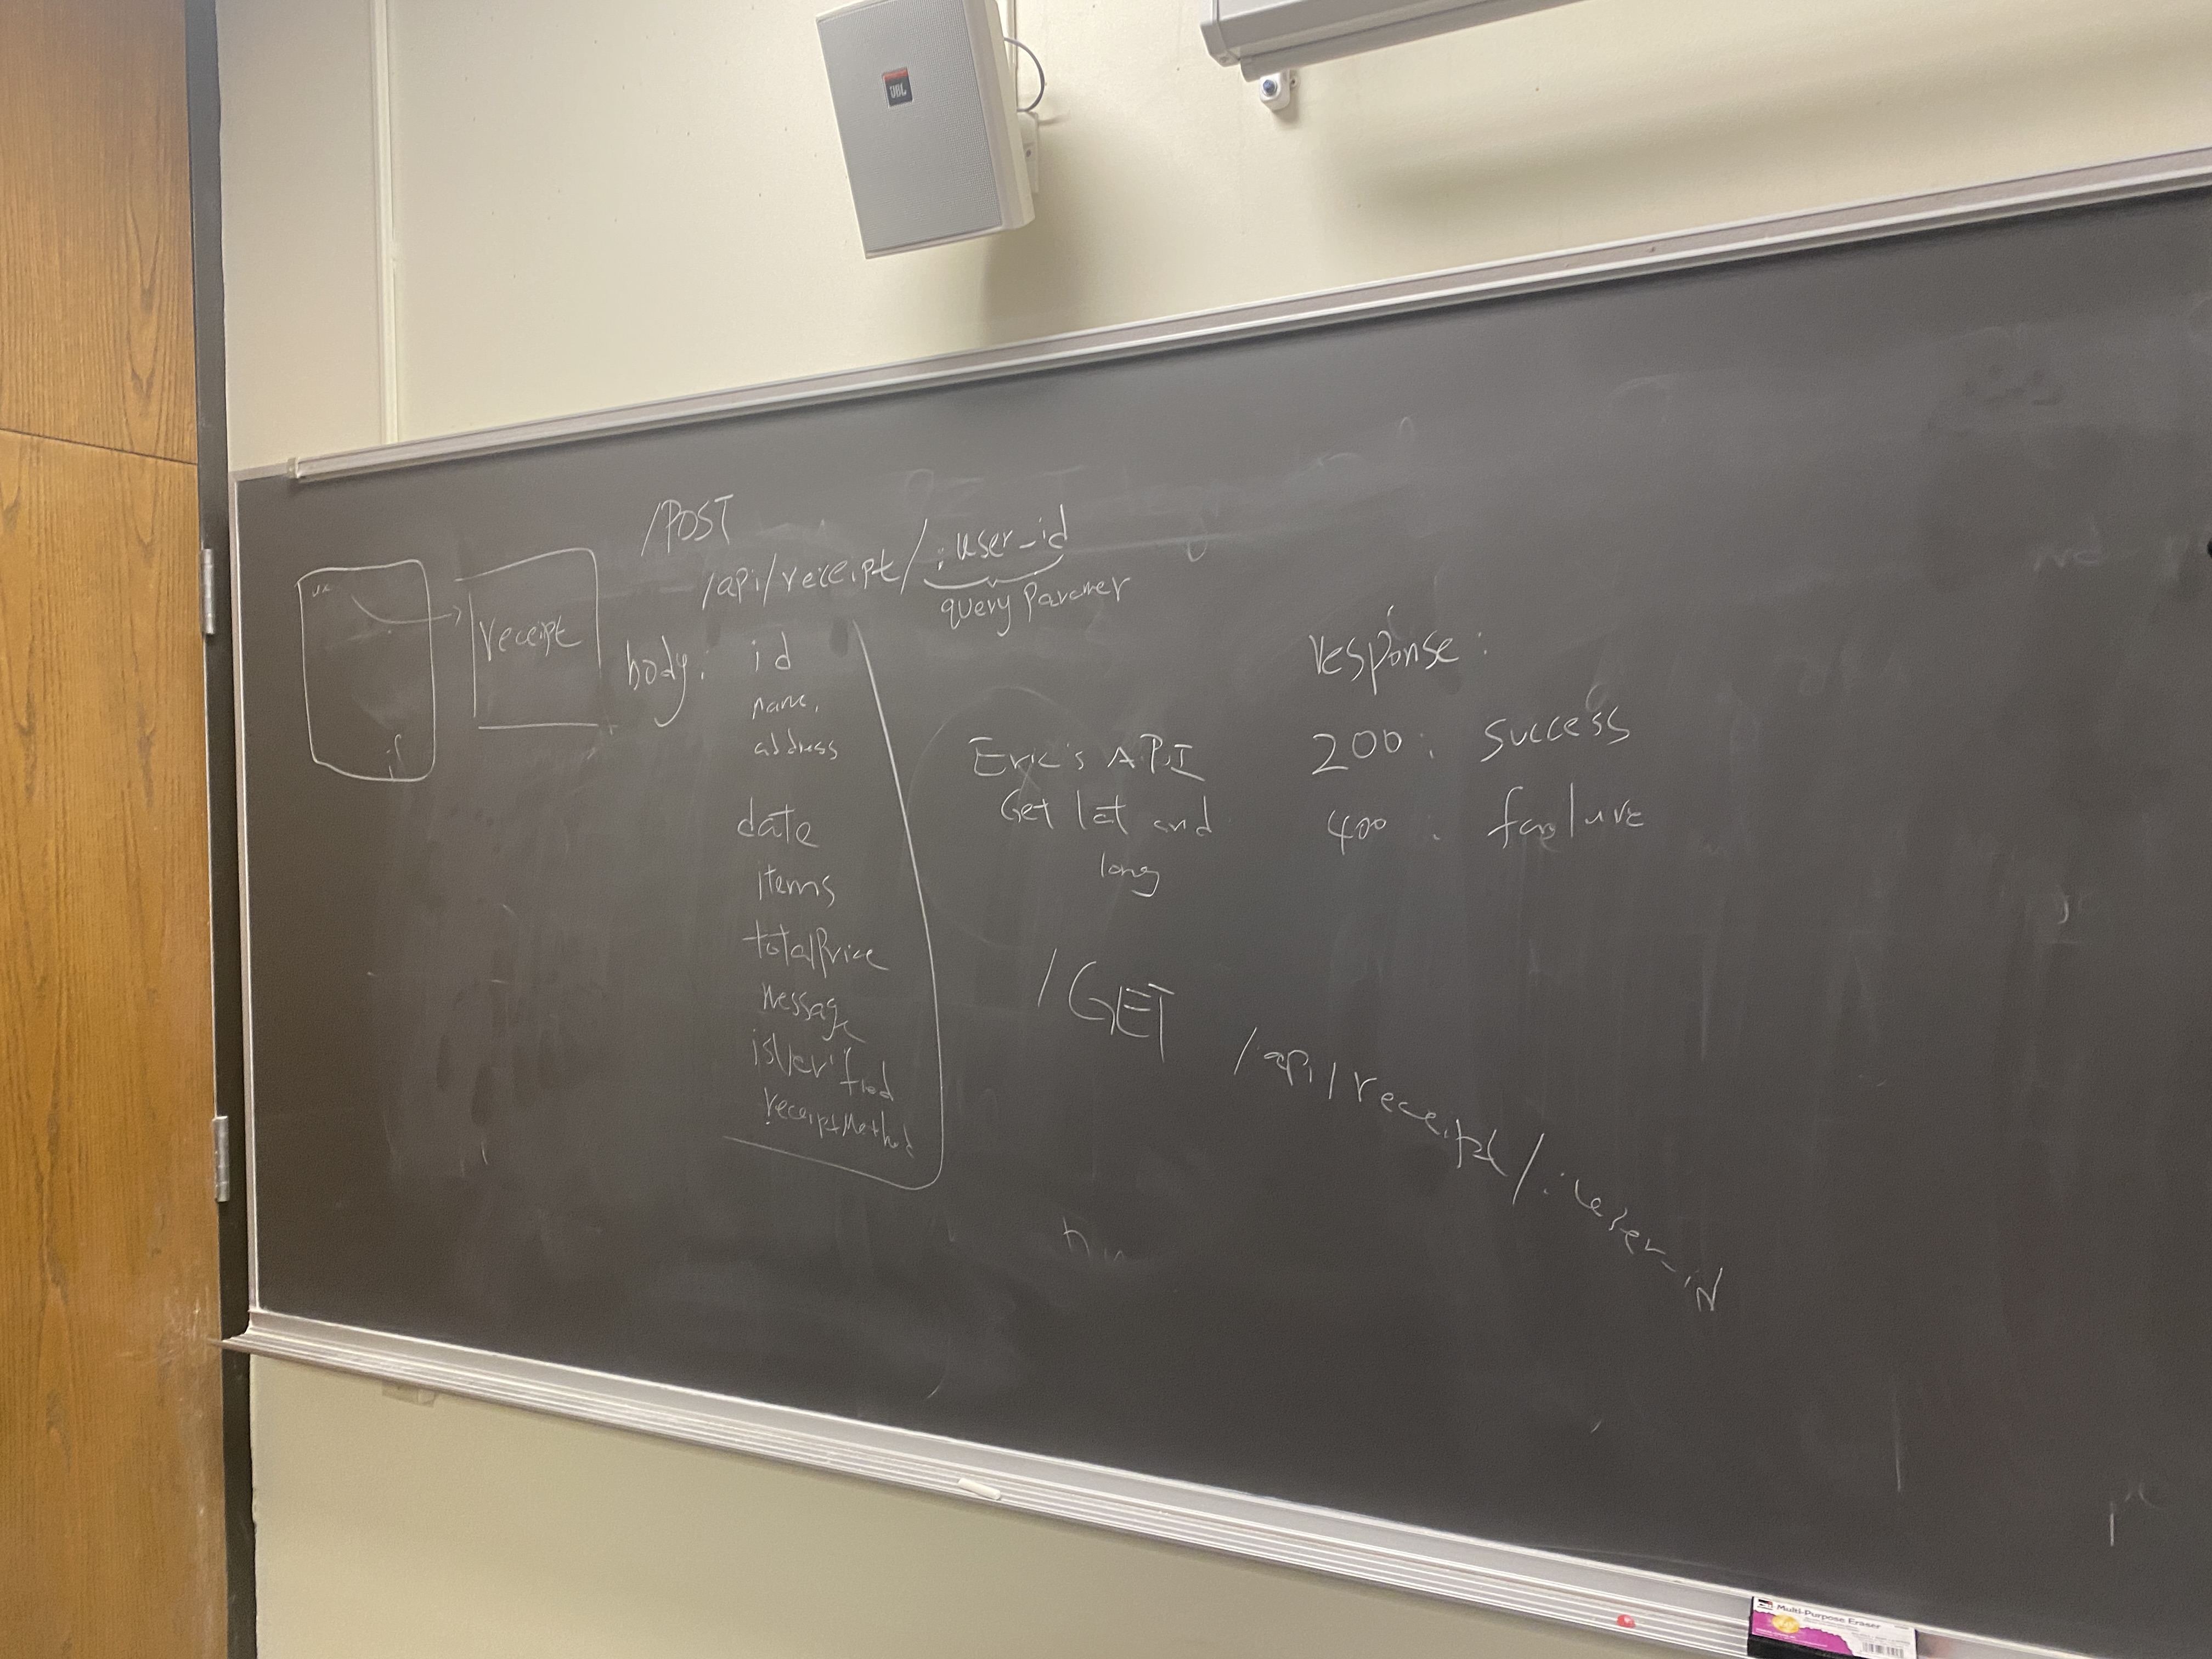 JBL
/POST
/api/receipt/:user_id
query Paramer
receipt
body:
id
name,
address
date
items
totalPrice
message
isVerified
receiptMethod
Eric's API
Get lat and
long
response:
200: success
400: failure
/GET
/api/receipt/:user_id
Multi-Purpose Eraser